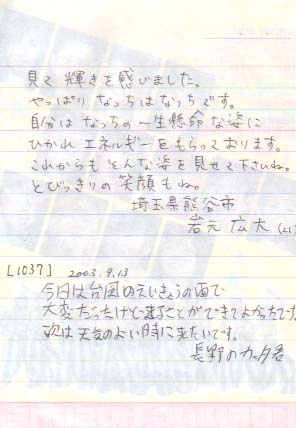 見て 輝きを感じました。
やっぱりなっちはなっちです。
自分は なっちの一生懸命な姿に
ひかれ エネルギーをもらっております。
これからも そんな姿を見せて下さいね。
とびっきりの笑顔もね。
埼玉県熊谷市
岩元 広大 (21)
[1037] 2003.9.13
今日は台風のえいきょうの雨で
大変だったけど来ることができてよかったです
次は天気のよい時に来たいです。
長野の